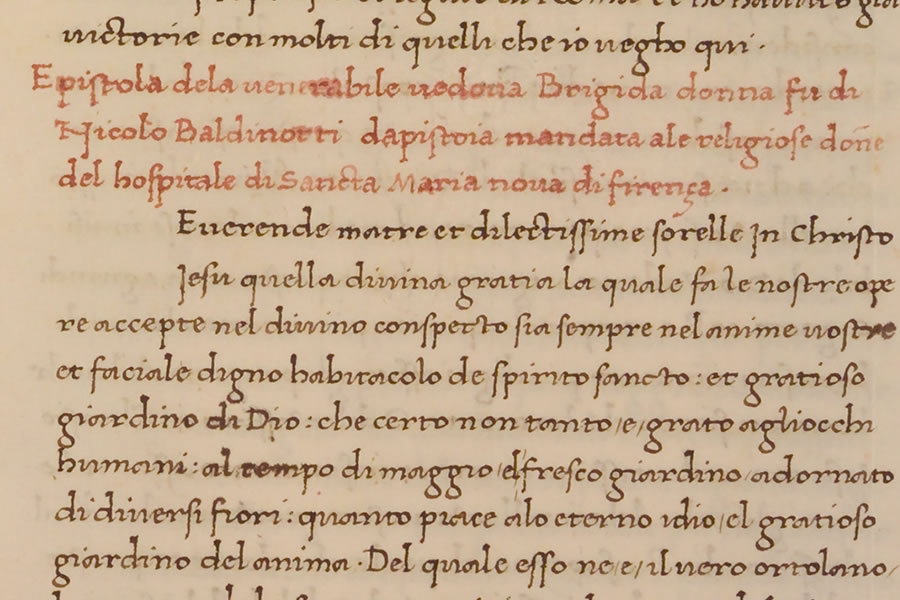 victorie con molti di quelli che io uegho qui ·
Epistola dela uenerabile uedoua Brigida donna fu di
Nicolo Baldinotti dapistoia mandata ale religiose don̄e
del hospitale di Sancta Maria noua di firença ·
Euerende matre et dilectissime sorelle In Christo
Jesu quella diuina gratia la quale fa le nostre ope
re accepte nel diuino conspecto sia sempre nel anime uostre
et faciale digno habitacolo de spirito sancto : et gratioso
giardino di Dio : che certo non tanto /e/ grato agliocchi
humani : al tempo di maggio /el fresco giardino adornato
di diuersi fiori : quanto piace alo eterno idio /el gratioso
giardino del anima · Del quale esso ne /e/ il uero ortolano /